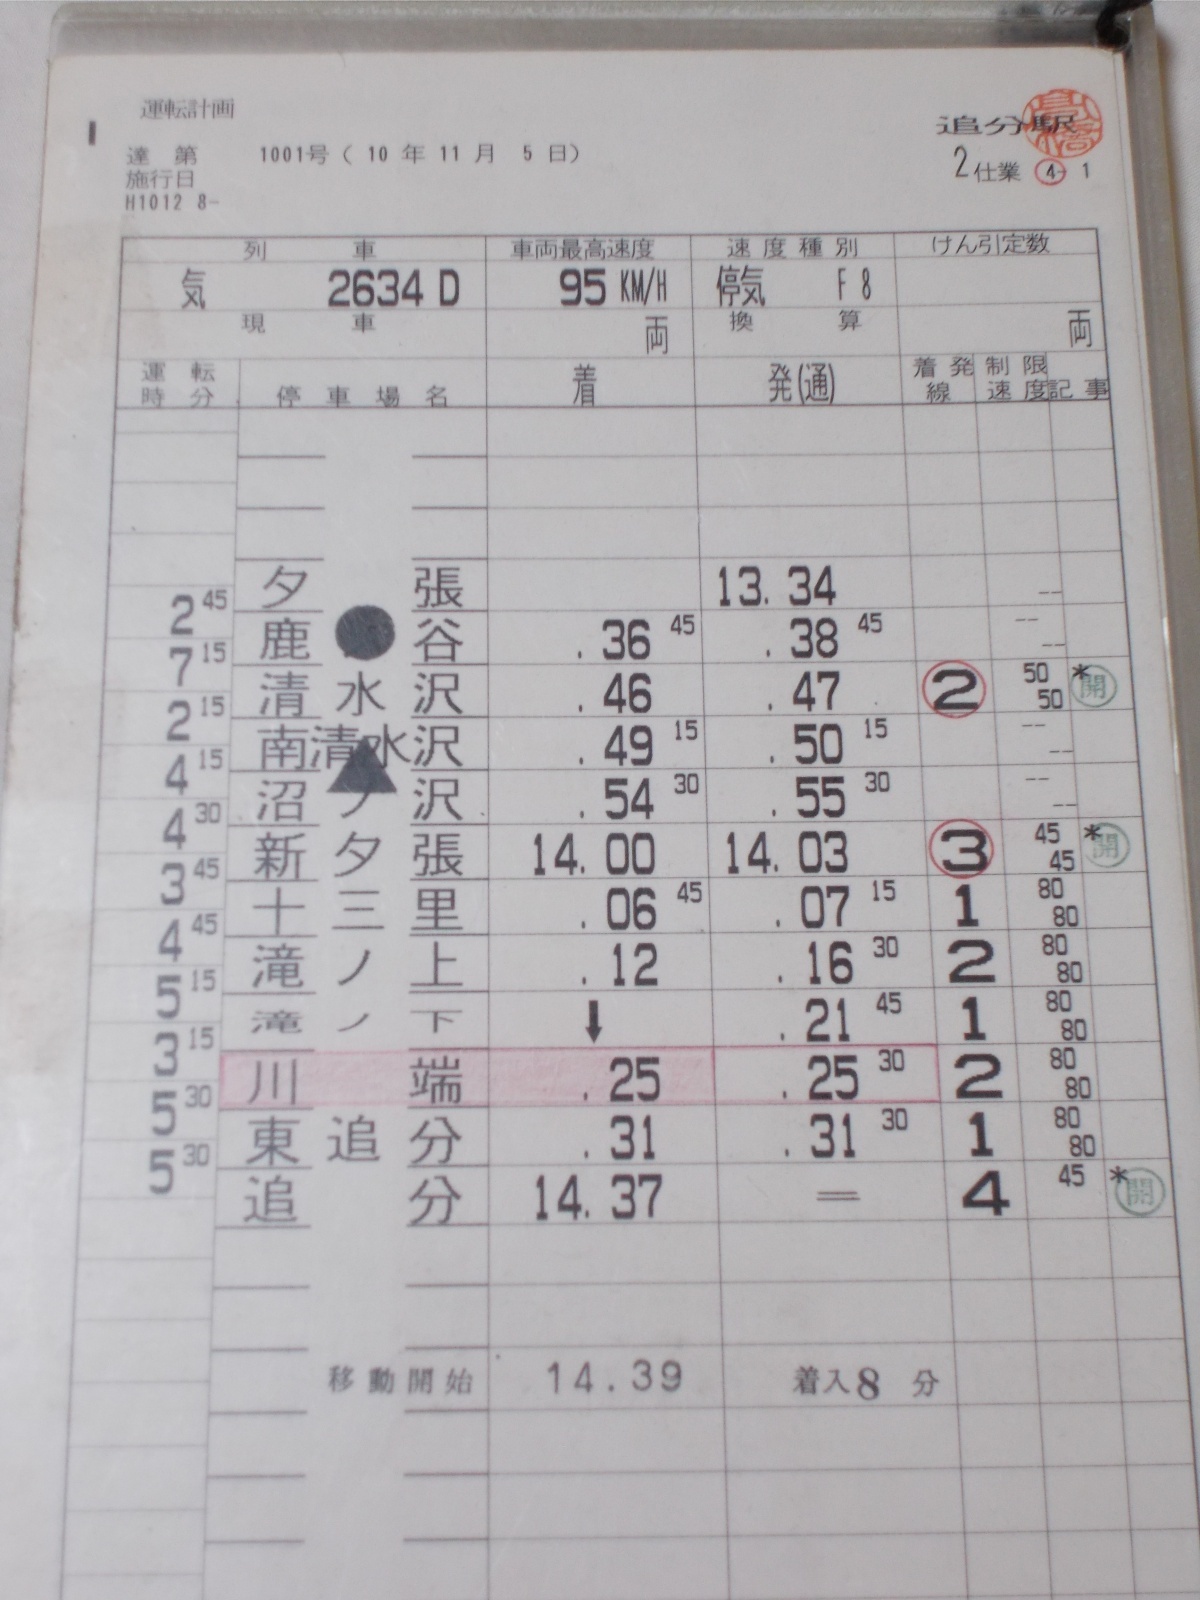 運転計画
達 第 1001号( 10 年 11 月 5 日)
施行日
H1012 8-
追分駅
2仕業 4- 1
列 車 車両最高速度 速度種別 けん引定数
気 2634 D 95 KM/H 停気 F 8
現 車 両 換 算 両
運転時分 停車場名 着 発(通) 着発線 制限速度 記事
夕 張 13. 34 --
2 45
鹿 谷 . 36 45 . 38 45 -- --
7 15
清水沢 . 46 . 47 2 50 50 * 開
2 15
南清水沢 . 49 15 . 50 15 --
4 15
沼ノ沢 . 54 30 . 55 30 -- --
4 30
新夕張 14. 00 14. 03 3 45 45 * 開
3 45
十三里 . 06 45 . 07 15 1 80 80
4 45
滝ノ上 . 12 . 16 30 2 80 80
5 15
滝ノ下 ↓ . 21 45 1 80 80
3 15
川 端 . 25 . 25 30 2 80 80
5 30
東追分 . 31 . 31 30 1 80 80
5 30
追 分 14. 37 = 4 45 * 開
移動開始 14.39 着入8 分